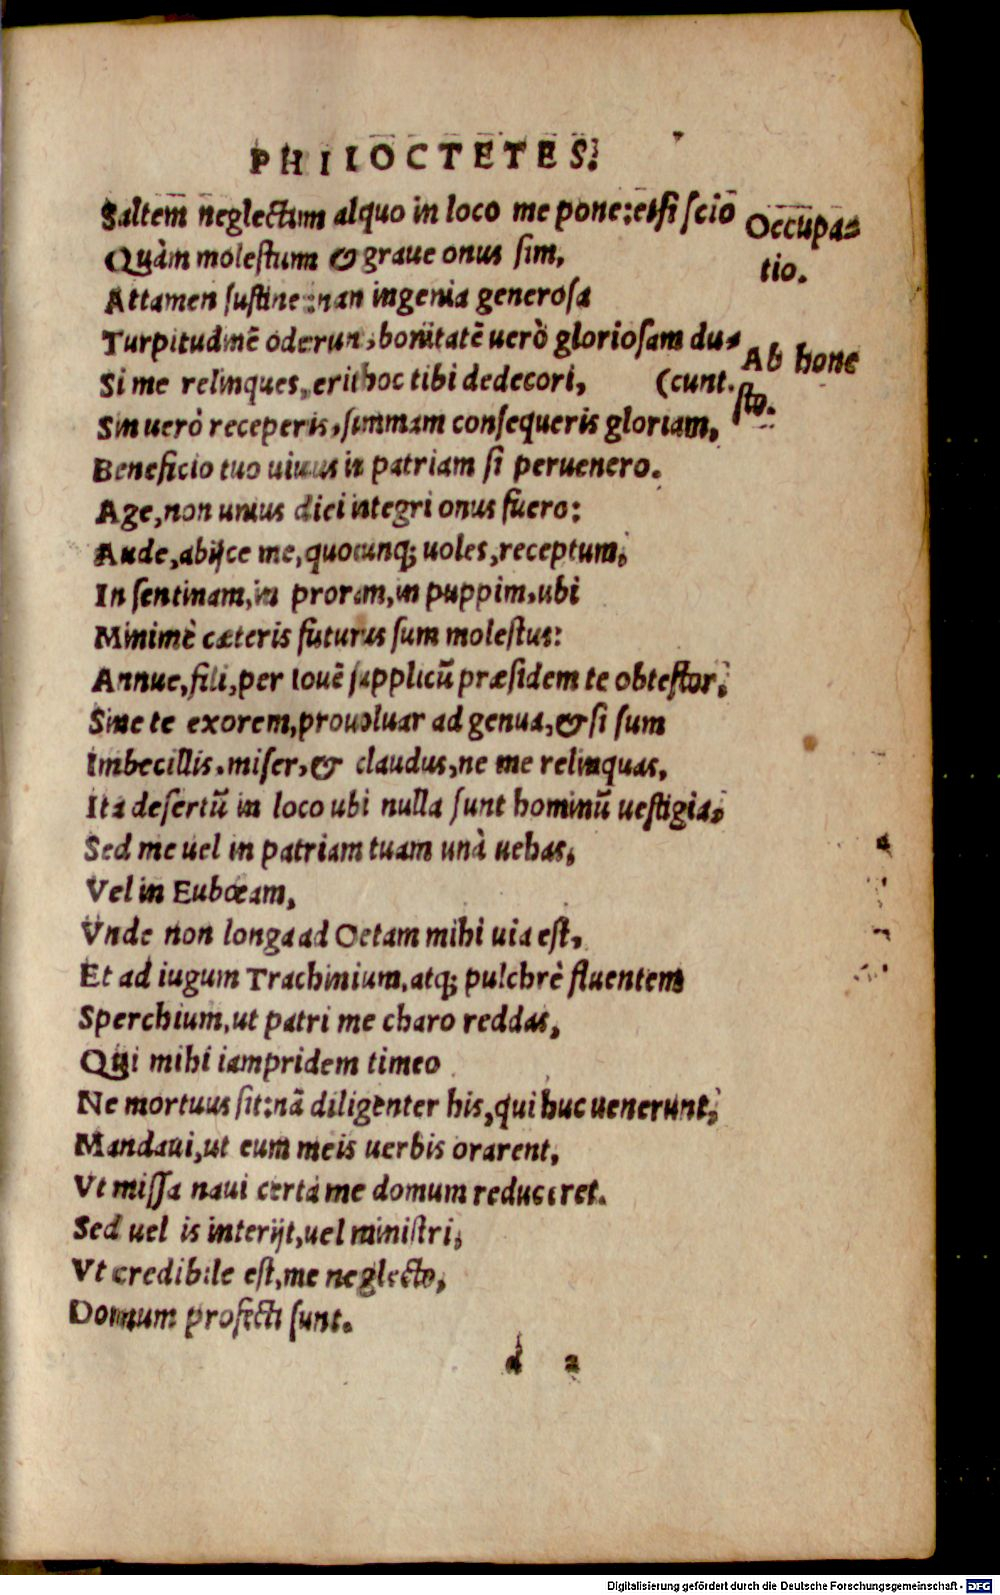 PHILOCTETES.
Saltem neglectum alquo in loco me pone: etsi scio
Occupa-
Quàm molestum & graue onus sim,
tio.
Attamen sustine: nan ingenia generosa
Turpitudinē oderunt, bonitatē uerò gloriosam du-
Ab hone
Si me relinques, erit hoc tibi dedecori, (cunt.
sto.
Sin uerò receperis, summam consequeris gloriam,
Beneficio tuo uiuus in patriam si peruenero.
Age, non unius diei integri onus fuero:
Aude, abijce me, quocunq; uoles, receptum,
In sentinam, in proram, in puppim, ubi
Minimè cæteris futurus sum molestus:
Annue, fili, per Iouē supplicū præsidem te obtestor,
Sine te exorem, prouoluar ad genua, & si sum
Imbecillis, miser, & claudus, ne me relinquas,
Ita desertū in loco ubi nulla sunt hominū uestigia,
Sed me uel in patriam tuam unà uehas,
Vel in Eubœam,
Vnde non longa ad Oetam mihi uia est,
Et ad iugum Trachinium, atq; pulchrè fluentem
Sperchium, ut patri me charo reddas,
Qui mihi iampridem timeo
Ne mortuus sit: nā diligenter his, qui huc uenerunt,
Mandaui, ut eum meis uerbis orarent,
Vt missa naui certa me domum reduceret.
Sed uel is interijt, uel ministri,
Vt credibile est, me neglecto,
Domum profecti sunt.
d 2
Digitalisierung gefördert durch die Deutsche Forschungsgemeinschaft - DFG